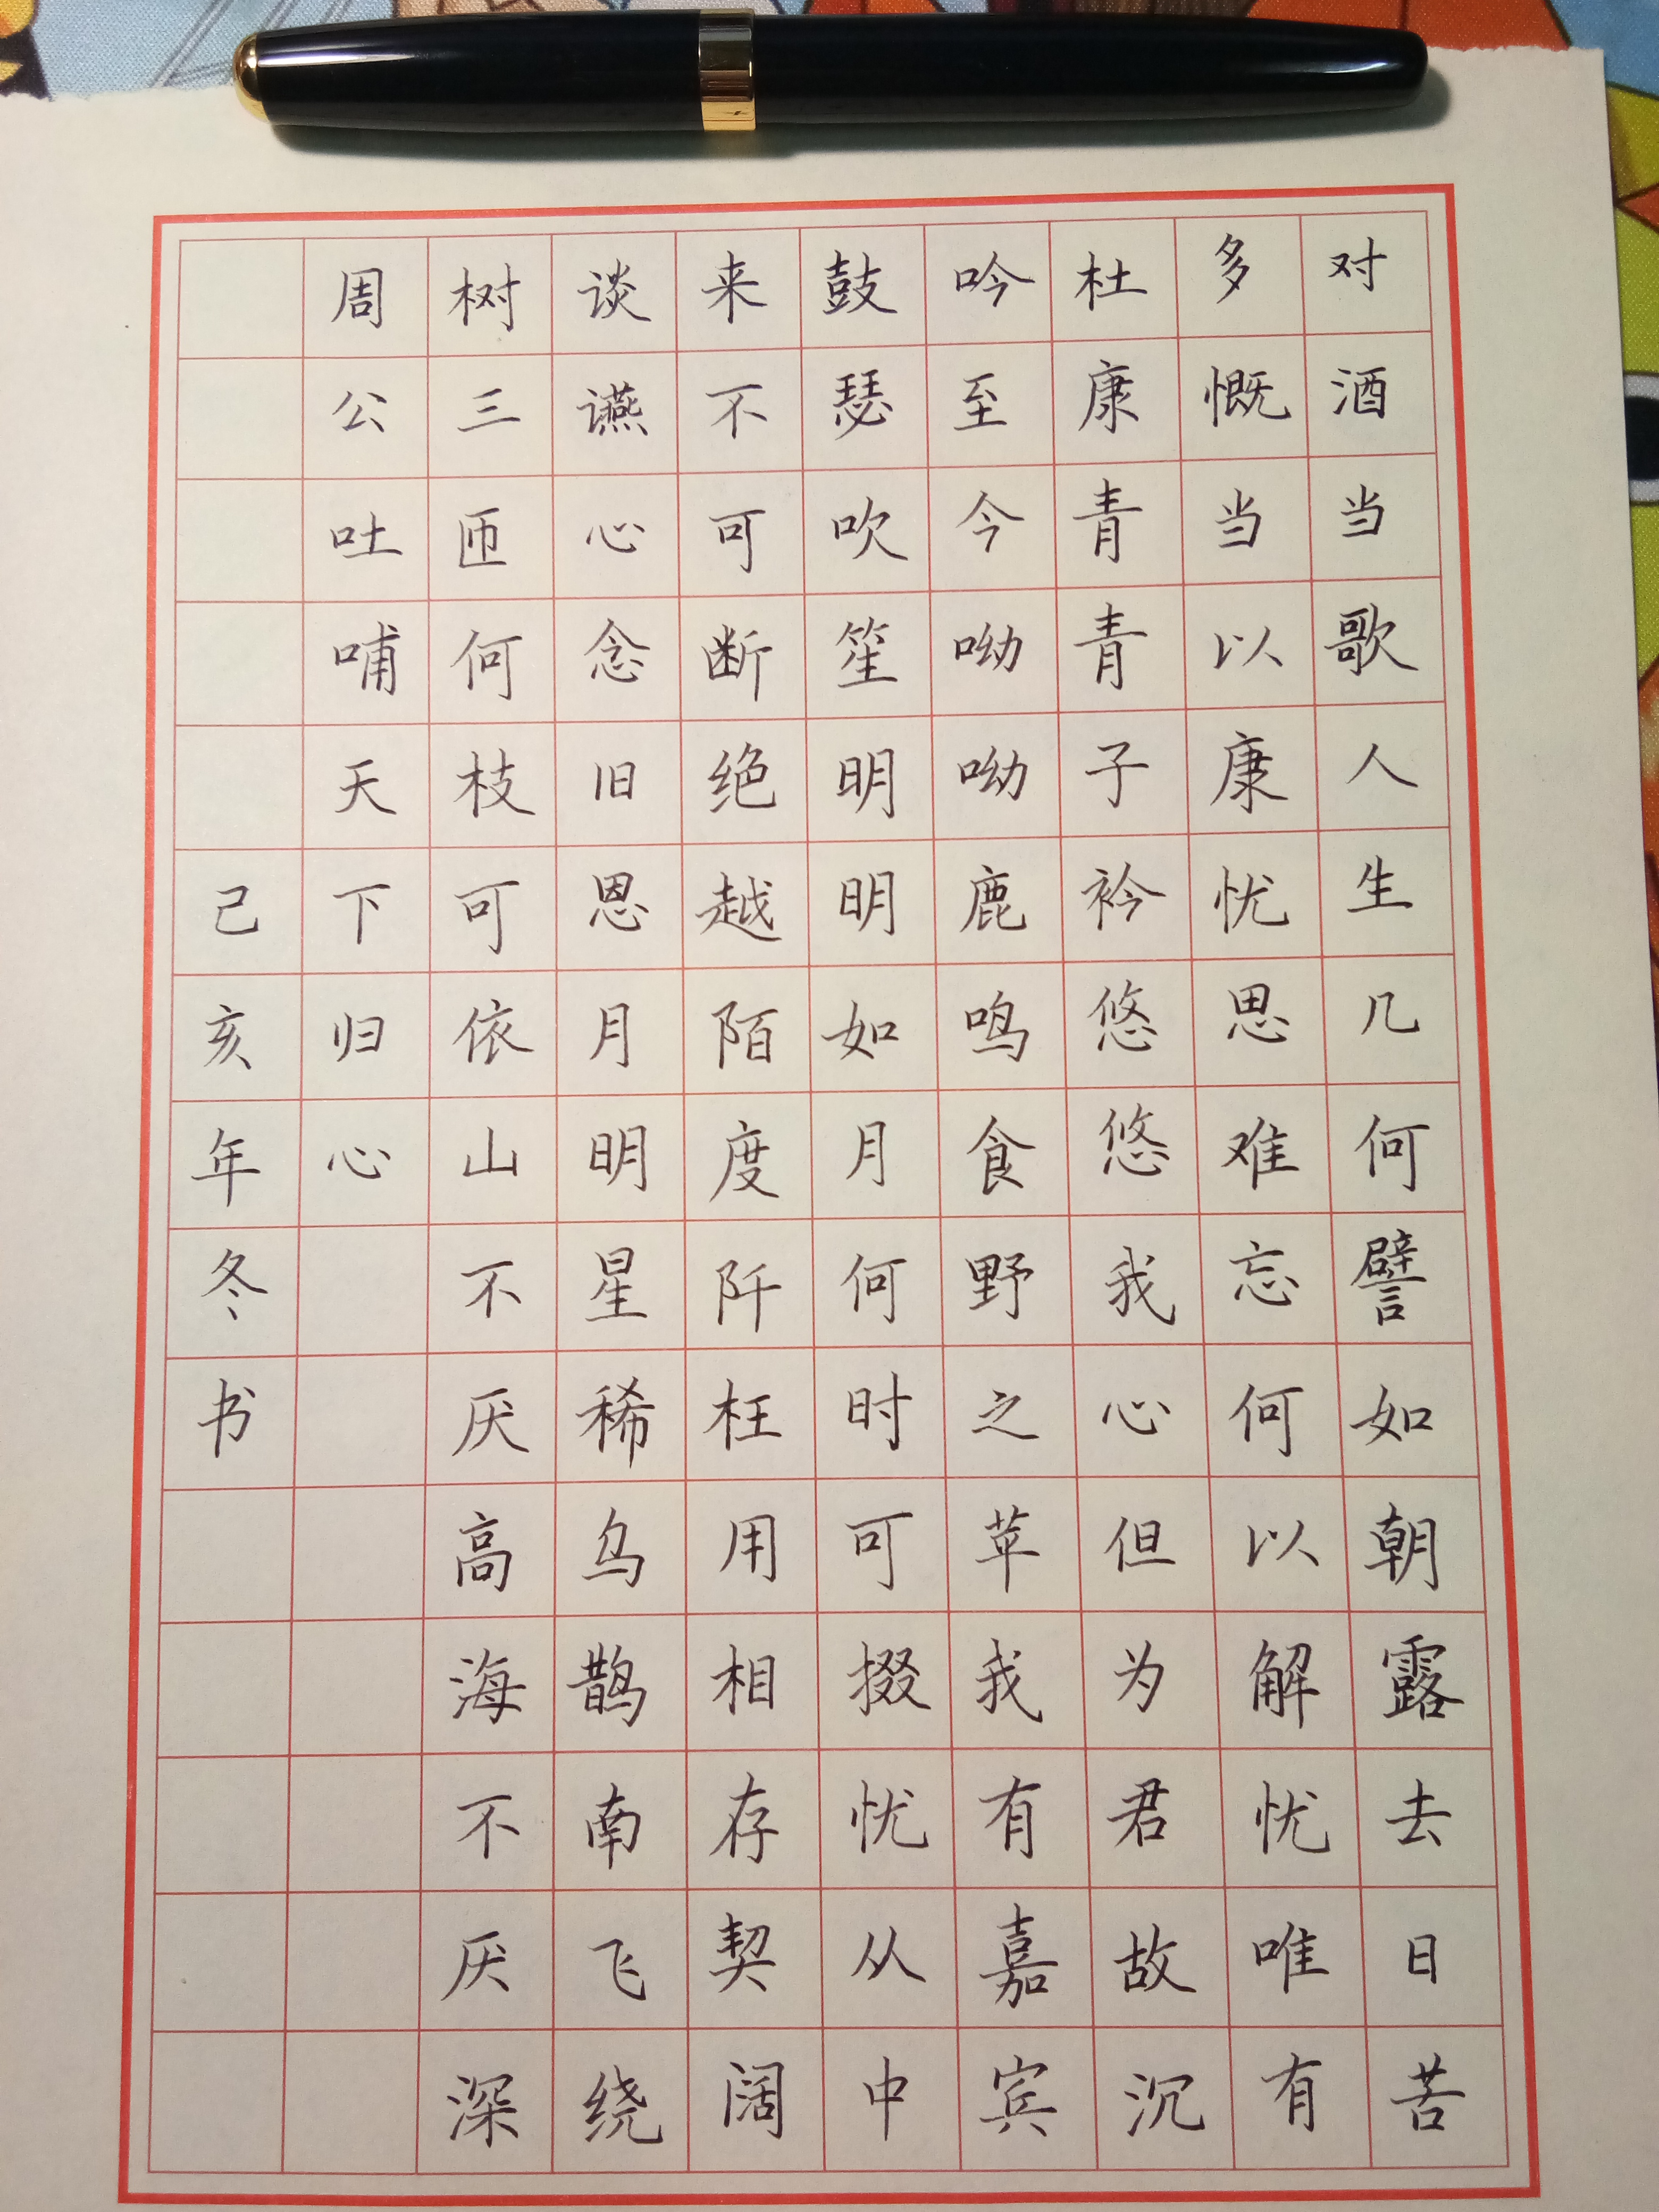 对酒当歌人生几何譬如朝露去日苦
多慨当以康忧思难忘何以解忧唯有
杜康青青子衿悠悠我心但为君故沉
吟至今呦呦鹿鸣食野之苹我有嘉宾
鼓瑟吹笙明明如月何时可掇忧从中
来不可断绝越陌度阡枉用相存契阔
谈䜩心念旧恩月明星稀乌鹊南飞绕
树三匝何枝可依山不厌高海不厌深
周公吐哺天下归心
己亥年冬书